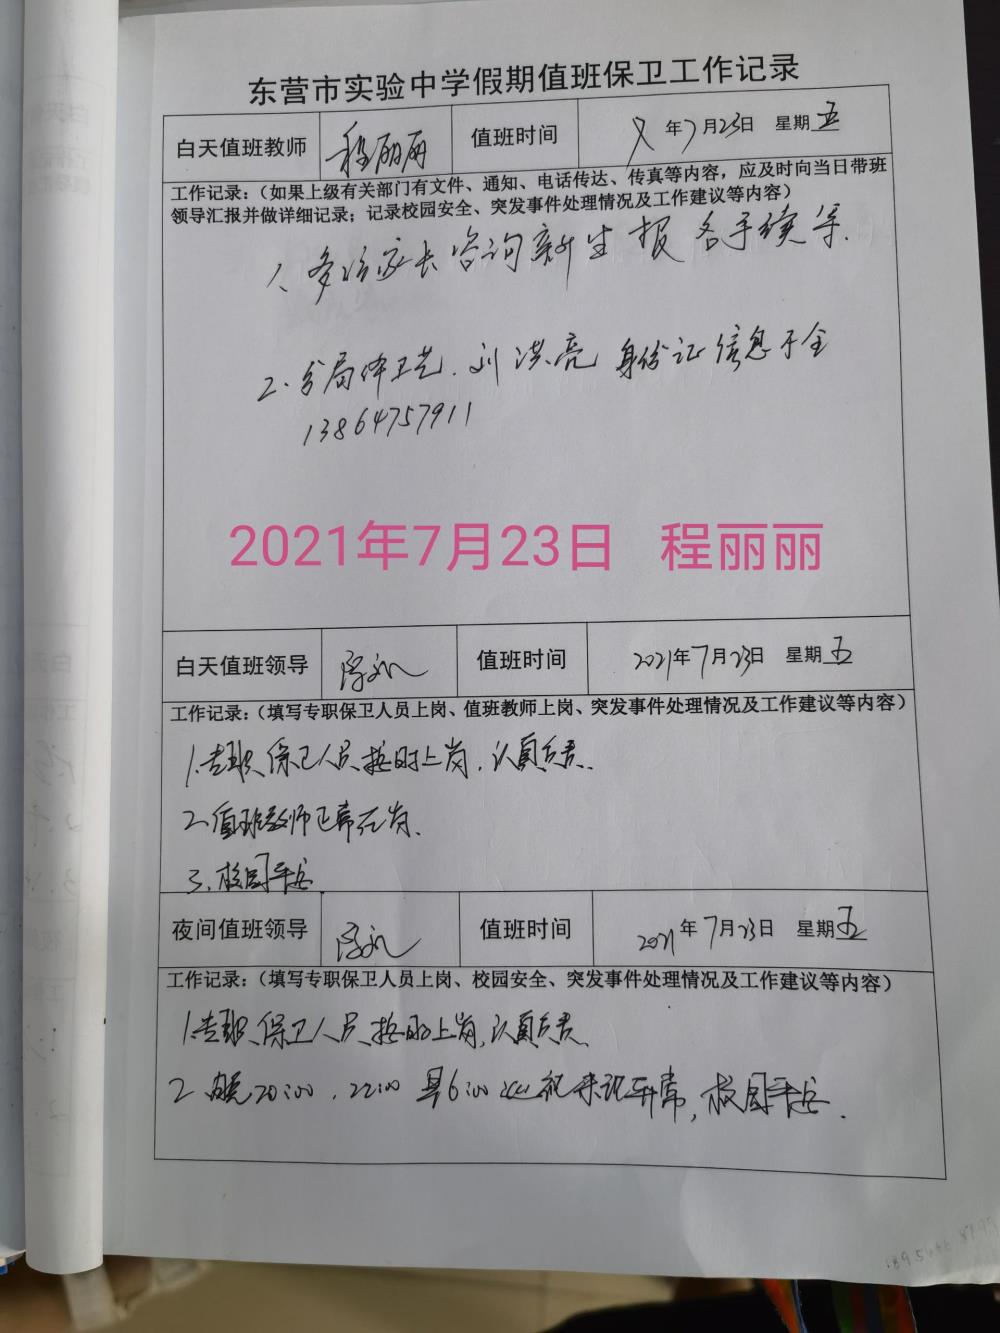 东营市实验中学假期值班保卫工作记录
白天值班教师 程丽丽 值班时间 年7月23日 星期五
工作记录：（如果上级有关部门有文件、通知、电话传达、传真等内容，应及时向当日带班
领导汇报并做详细记录；记录校园安全、突发事件处理情况及工作建议等内容）
1、多位家长咨询新生报名手续等.
2.分局体卫艺.刘洪亮 身份证信息不全
13864757911
2021年7月23日 程丽丽
白天值班领导 值班时间 2021年7月23日 星期五
工作记录：（填写专职保卫人员上岗、值班教师上岗、突发事件处理情况及工作建议等内容）
1.专职保卫人员按时上岗，认真负责.
2.值班教师正常在岗.
3.校园平安
夜间值班领导 值班时间 2021年7月23日 星期五
工作记录：（填写专职保卫人员上岗、校园安全、突发事件处理情况及工作建议等内容）
1.专职保卫人员按时上岗，认真负责.
2.晚20:00.22:00 早6:00巡视未见异常，校园平安.